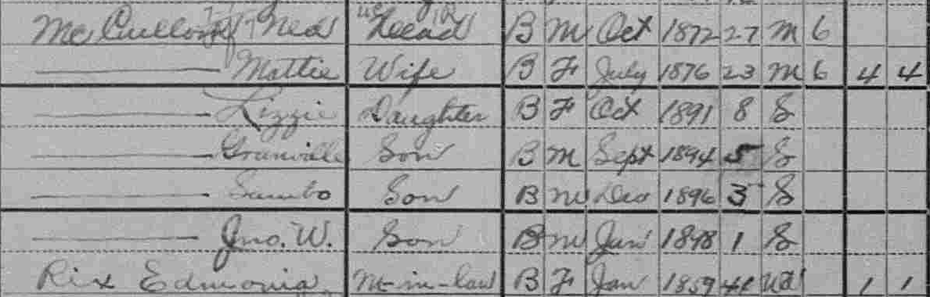 McCullough Ned Head B M Oct 1872 27 M 6
Mattie Wife B F July 1876 23 M 6 4 4
Lizzie Daughter B F Oct 1891 8 S
Granville Son B M Sept 1894 5 S
Sambo Son B M Dec 1896 3 S
Jno. W. Son B M Jan 1898 1 S
Rix Edmonia M-in-law B F Jan 1859 41 Wd 1 1